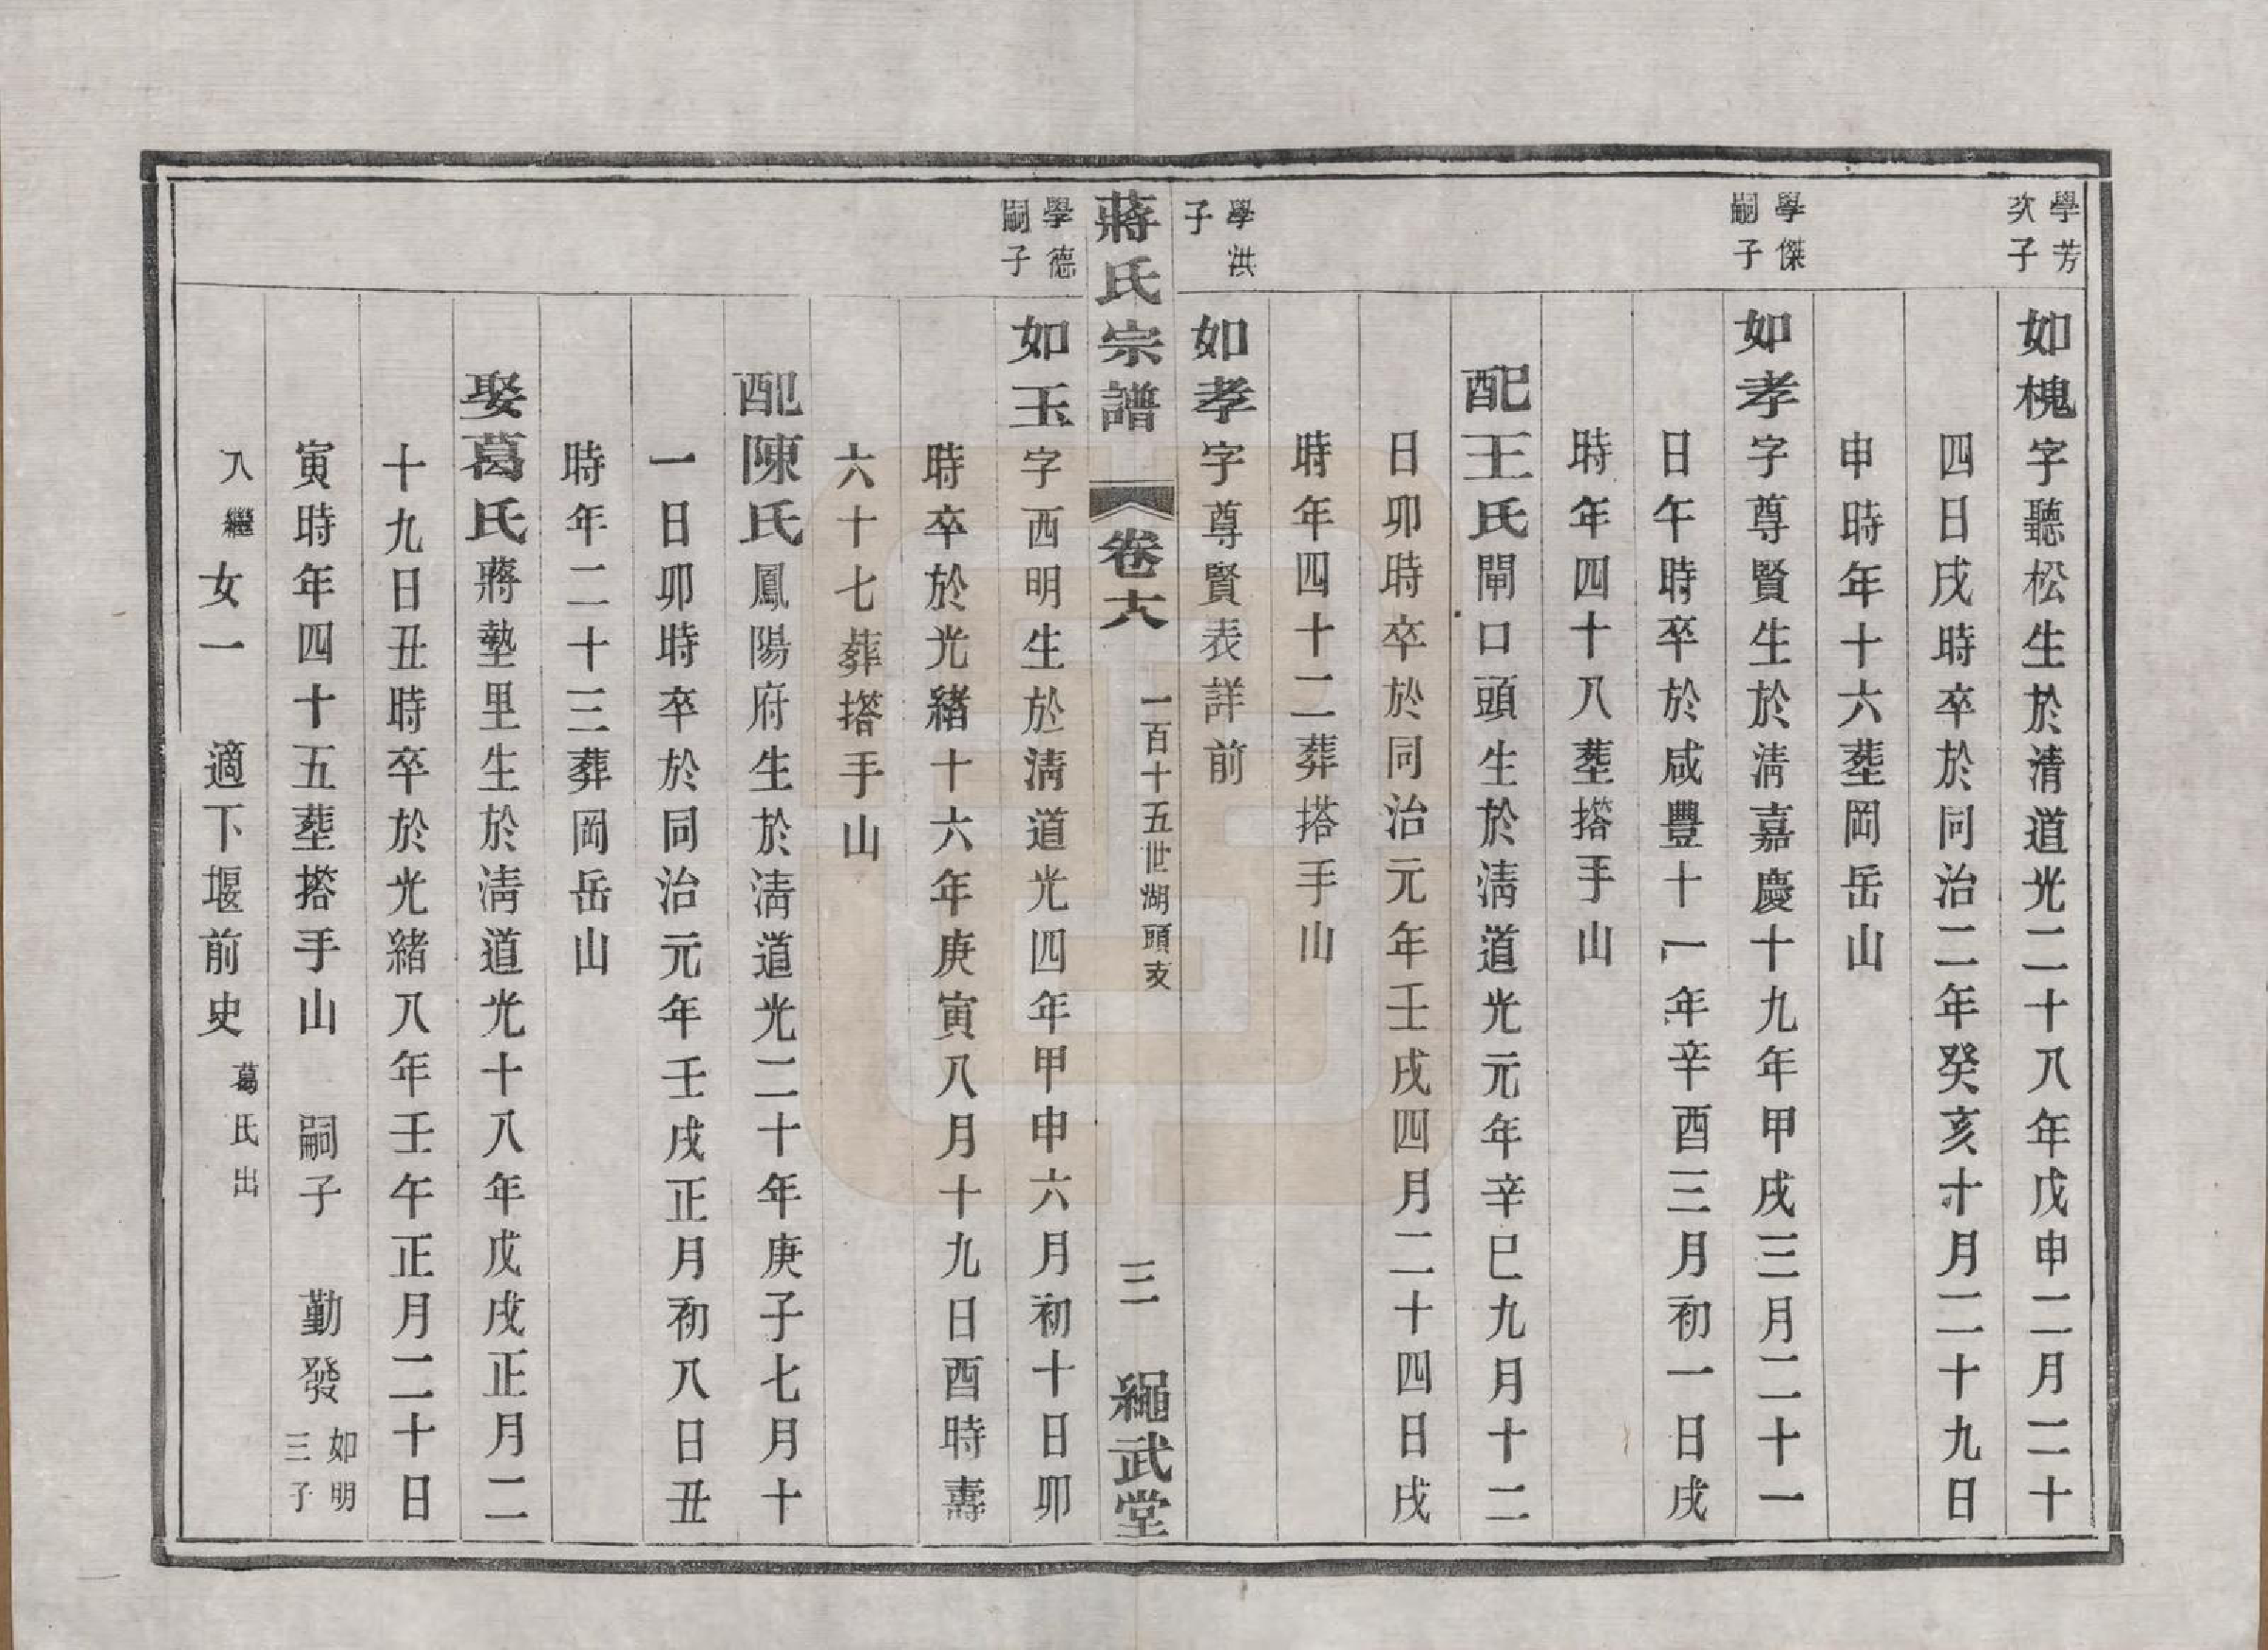 學芳
次子
如槐字聽松生於清道光二十八年戊申二月二十
四日戌時卒於同治二年癸亥十月二十九日
申時年十六塟岡岳山
學傑
嗣子
如孝字尊賢生於淸嘉慶十九年甲戌三月二十一
日午時卒於咸豐十一年辛酉三月初一日戌
時年四十八塟撘手山
配王氏閘口頭生於淸道光元年辛巳九月十二
日卯時卒於同治元年壬戌四月二十四日戌
時年四十二葬搭手山
學洪
子
如孝字尊賢表詳前
蔣氏宗譜
卷十六
一百十五世湖頭支
三
繩武堂
學德
嗣子
如玉字西明生於淸道光四年甲申六月初十日卯
時卒於光緖十六年庚寅八月十九日酉時壽
六十七葬撘手山
配陳氏鳳陽府生於淸道光二十年庚子七月十
一日卯時卒於同治元年壬戌正月初八日丑
時年二十三葬岡岳山
娶葛氏蔣墊里生於淸道光十八年戊戌正月二
十九日丑時卒於光緖八年壬午正月二十日
寅時年四十五塟撘手山 嗣子 勤發如明
三子
入繼 女一 適下堰前史葛氏出